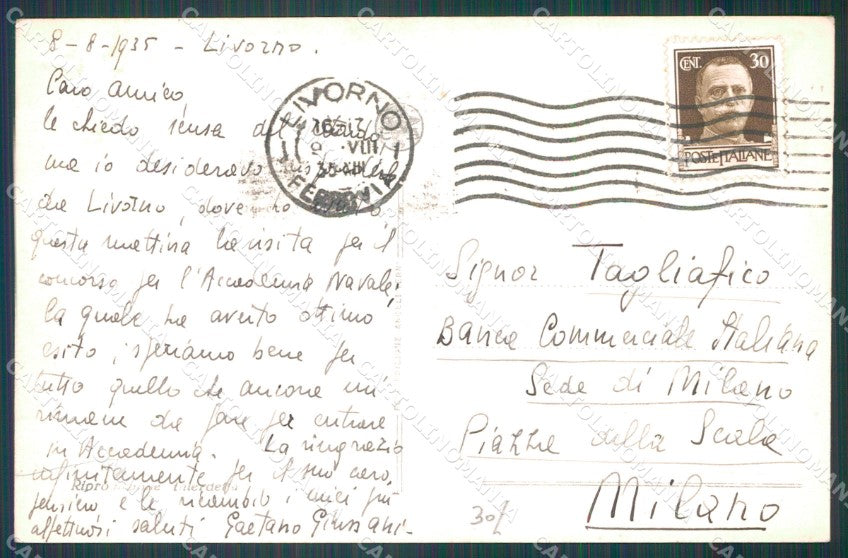 8-8-1935 - Livorno.
Caro amico,
le chiedo scusa del
ma io desideravo
da Livorno, dove ho
questa mattina la visita per il
concorso per l'Accademia Navale,
la quale ha avuto ottimo
esito; speriamo bene per
tutto quello che ancora mi
rimane da fare per entrare
in Accademia. La ringrazio
infinitamente per il suo caro
pensiero e le ricambio i miei più
affettuosi saluti Gaetano Giussani-
LIVORNO
VIII
35-XIII
FERROVIA
CENT. 30
POSTE ITALIANE
Signor Tagliafico
Banca Commerciale Italiana
Sede di Milano
Piazza della Scala
Milano
30
CARTOLINOMANIA